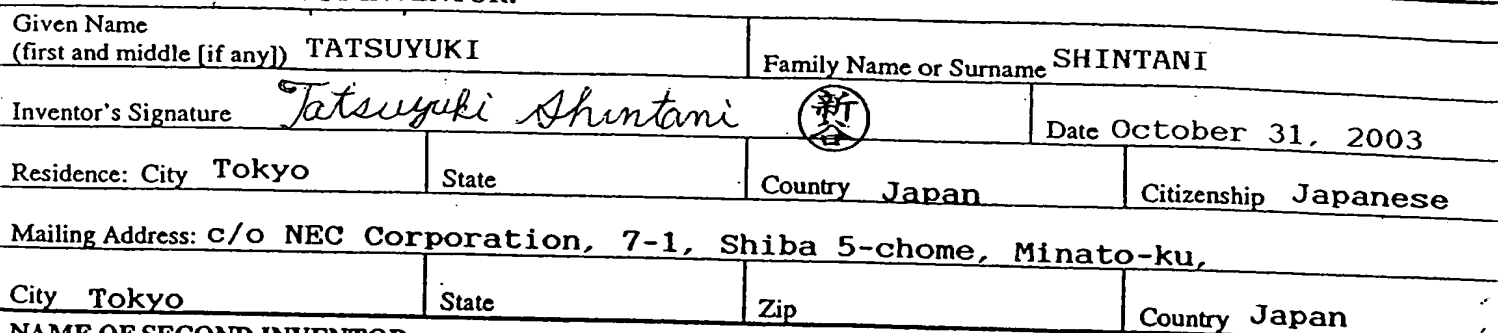 INVENTOR:
Given Name
(first and middle [if any]) TATSUYUKI Family Name or Surname SHINTANI
Inventor's Signature Tatsuyuki Shintani 新谷 Date October 31, 2003
Residence: City Tokyo State Country Japan Citizenship Japanese
Mailing Address: c/o NEC Corporation, 7-1, Shiba 5-chome, Minato-ku,
City Tokyo State Zip Country Japan
NAME OF SECOND INVENTOR